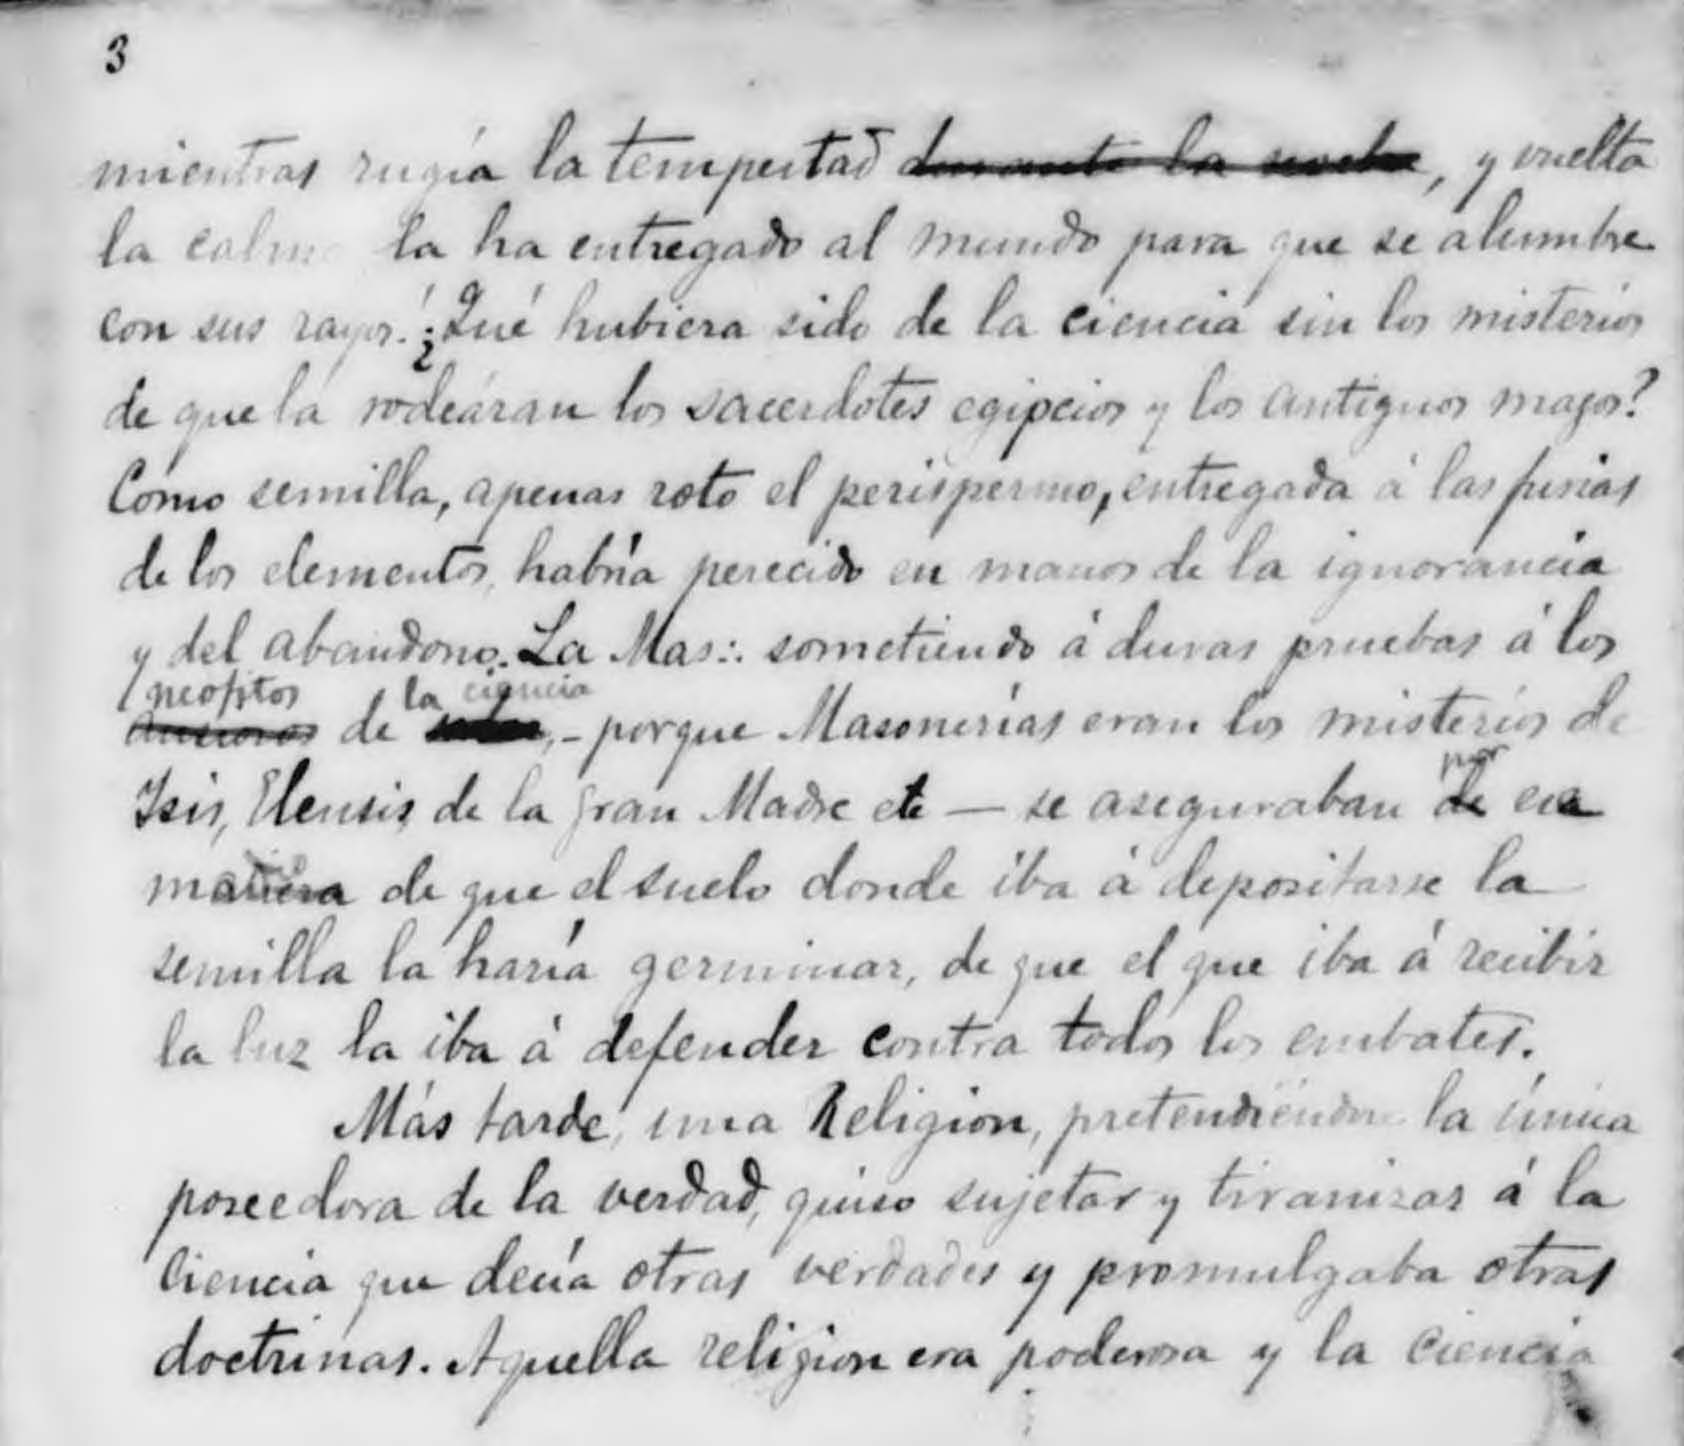 3
mientras rugía la tempestad durante la noche, y vuelta
la calma la ha entregado al mundo para que se alumbre
con sus rayos. ¿Qué hubiera sido de la ciencia sin los misterios
de que la rodeáran los sacerdotes egipcios y los antiguos magos?
Como semilla, apenas roto el perispermo, entregada á las furias
de los elementos, habría perecido en manos de la ignorancia
y del abandono. La Mas∴ sometiendo á duras pruebas á los
neófitos la ciencia
ansiosos de saber, - porque Masonerías eran los misterios de
por
Isis, Eleusis, de la gran Madre etc — se aseguraban de esa
manera de que el suelo donde iba á depositarse la
semilla la haría germinar, de que el que iba á recibir
la luz la iba á defender contra todos los embates.
Más tarde, una Religion, pretendiéndose la única
poseedora de la verdad, quiso sujetar y tiranizar á la
Ciencia que decía otras verdades y promulgaba otras
doctrinas. Aquella religion era poderosa y la Ciencia